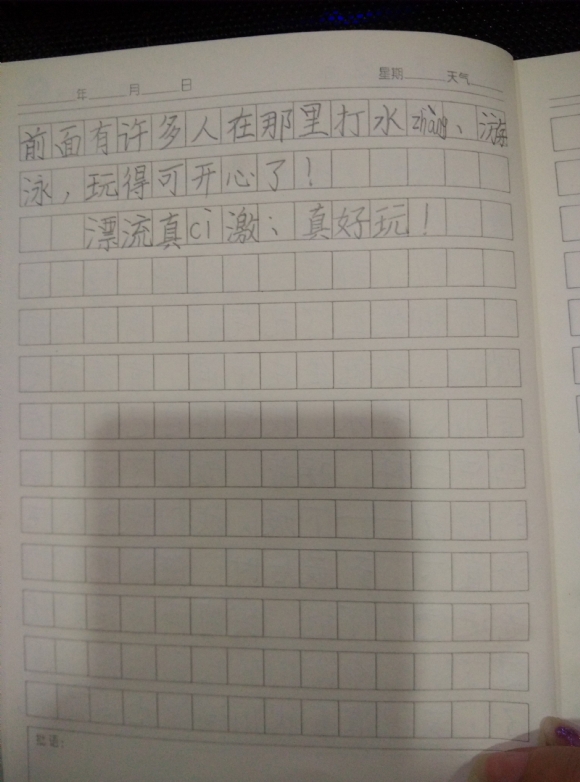 年 月 日 星期 天气
前面有许多人在那里打水zhàng、游
泳，玩得可开心了！
漂流真cì激；真好玩！